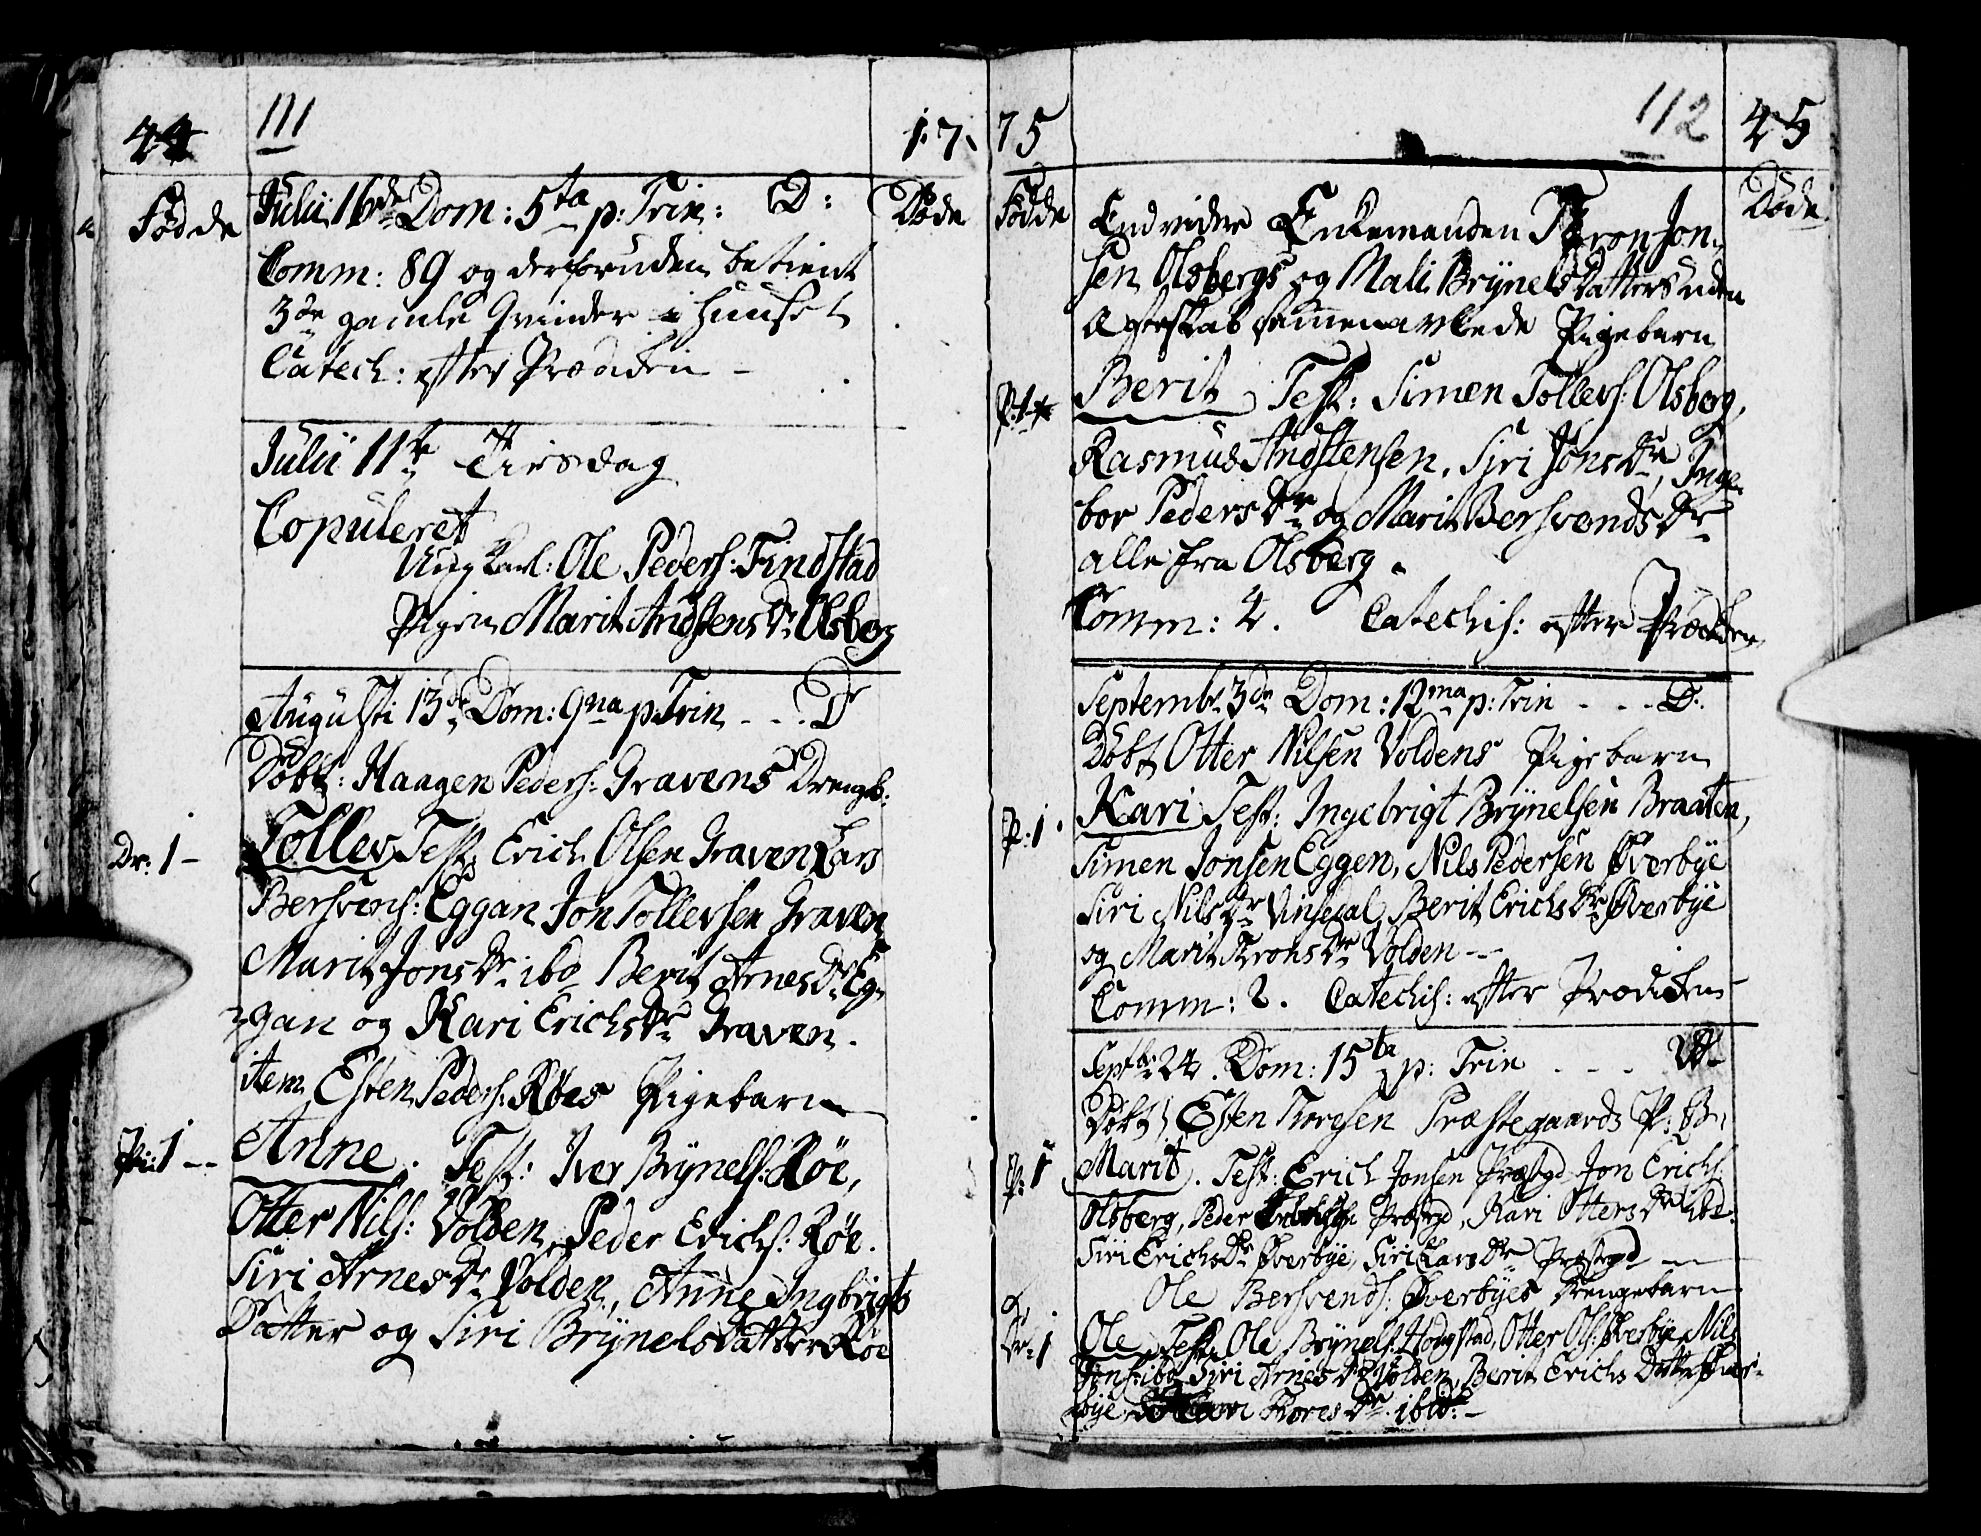 44 111 17
Fødde Julii 16de Dom: 5ta p: Trin: D: Døde
Comm: 89 og derforuden betient
3de gamle Qvinder i Huuset
Catech: efter Prædiken -
Julii 11te Tirsdag
Copuleret
Ung Karl: Ole Peders: Findstad
Pigen Marit AndstensDr Olsberg
Augusti 13de Dom: 9na p: Trin - - . D
Døbt: Haagen Peders: Gravens Drengb:
Dr: 1 - Tollev Test. Erich Olsen Graven Lars
Bersvens: Eggan Jon Tollevsen Graven
Marit JonsDr ibd Berit ArnesDr Eg-
gan og Kari ErichsDr Graven.
item Esten Peders: Røes Pigebarn
Pi: 1 -- Anne. Test: Iver Brÿnels: Røe,
Otter Nils: Volden, Peder Erichs: Røe.
Siri ArnesDr Volden, Anne Ingbrigts
Datter og Siri BrÿnelsDatter Røe
75 112 45
Fødde Døde
Endvidere Enkemanden Tron Jon-
sen Olsbergs og Mali BrÿnelsDatters uden
Ægteskab sammenavlede Pigebarn
P: 1 Berit Test: Simen Tollevs: Olsberg,
Rasmus Andstensen, Siri JonsDr, Inge-
bor PedersDr og Marit BersvendsDr
alle fra Olsberg.
Comm: 4. Catechis: efter Prædiken
Septembr 3de Dom: 12ma p: Trin - - - D:
Døbt Otter Nilsen Voldens Pigebarn
P: 1. Kari Test: Ingebrigt Brÿnelsen Braaten,
Simen Jonsen Eggen, Nils Pedersen Øverbÿe
Siri NilsDr Vinsdal, Berit ErichsDr Øverbÿe
og Marit TronsDr Volden --
Comm: 2. Catechis: efter Prædiken
Septbr 24. Dom: 15ta p: Trin . - -
Døbt Esten Thoresen Præstegaards P: B:
P: 1 Marit. Test: Erich Jonsen Præstgd Jon Erichs:
Olsberg, Peder Præstgd, Kari OttersDr ibd:
Siri ErichsDr Øverbÿe, Siri LarsDr Præstgd
Ole Bersvends: Øverbÿes Drengebarn
og
Dr: 1 Ole Test. Ole Brÿnels: Hougstad, Otter Ols: Øverbÿe Nils
Jons: ibd Siri ArnesDr Volden, Berit Erichs Datter Øver-
bÿe ThoresDr ibid: -